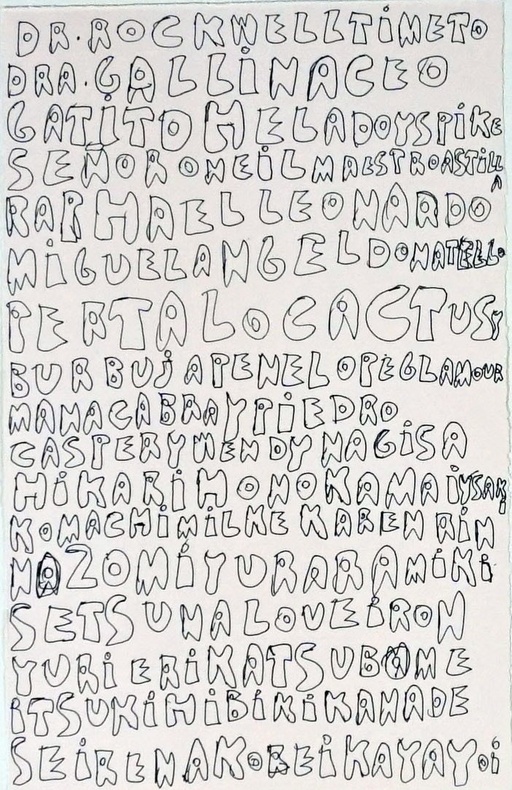 DR. ROCKWELLTiMETO
DRA. GALLiNACEO
GATiTOHELADOYSPiKE
SEÑORONEiLMAESTROASTiLLA
RAPHAELLEONARDO
MiGUELANGELDONATELLO
PERTALOCACTUSY
BURBUJAPENELOPEGLAMOUR
MAMACABRAYPiEDRO
CASPERYWENDYNAGiSA
HiKARiHONOKAMAiYSAKi
KOMACHiMiLKEKARENRiN
NOZOMiYURARAMiKi
SETSUNALOVEiRON
YURiERiKATSUBOME
iTSUKiHiBiKiKANADE
SEiRENAKOREiKAYAYOi